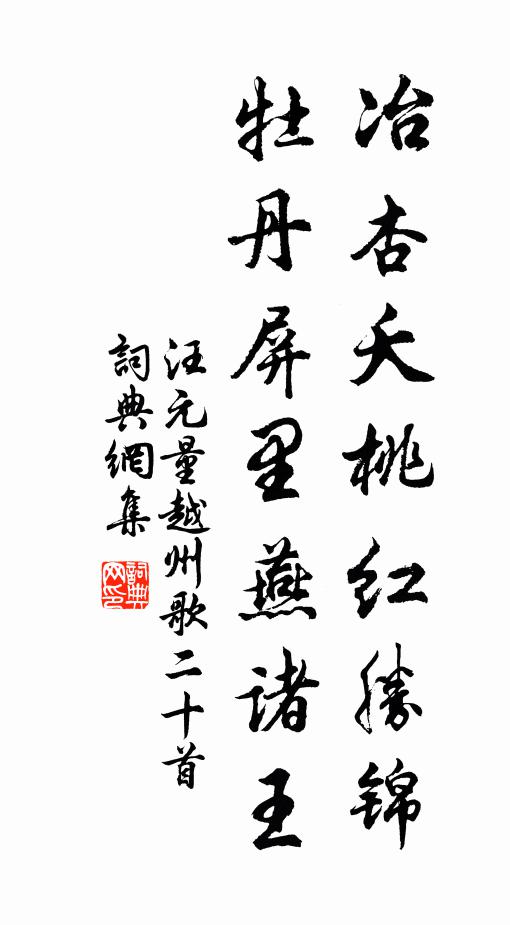 冶杏夭桃红勝锦
牡丹屏里燕诸王
汪元量越州歌二十首
詞典網集
詞典网印